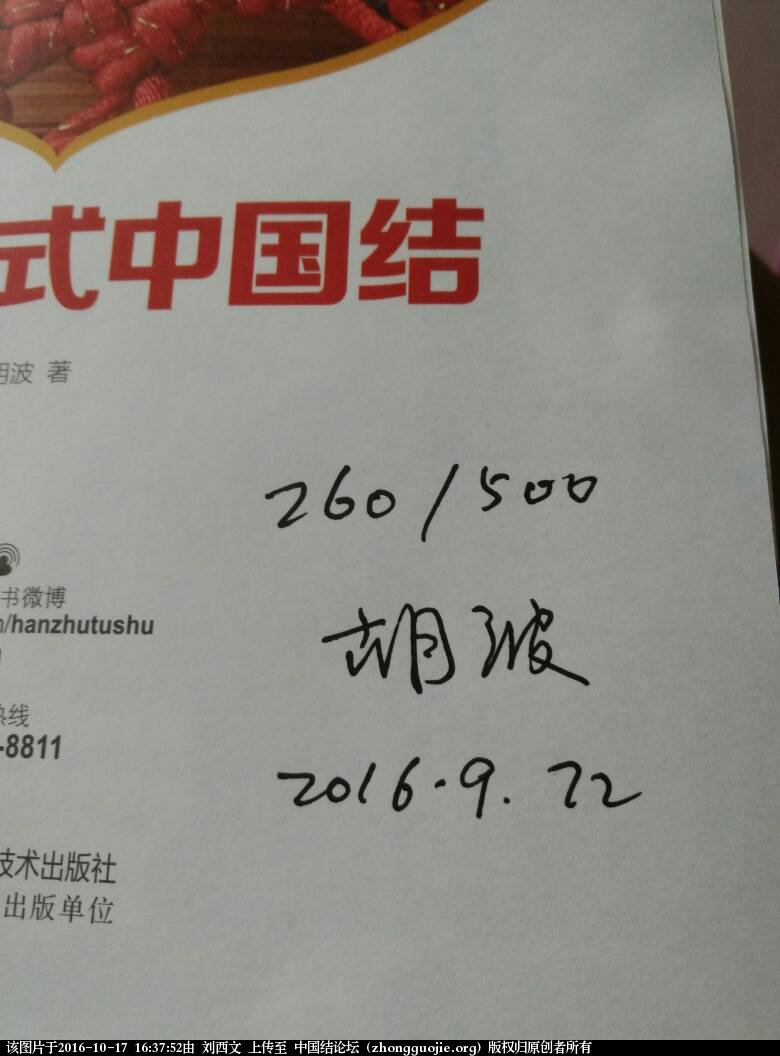 式中国结
胡波 著
260/500
书微博
/hanzhutushu
胡波
热线
-8811
2016.9.22
技术出版社
出版单位
该图片于2016-10-17 16:37:52由 刘西文 上传至 中国结论坛 (zhongguojie.org) 版权归原创者所有